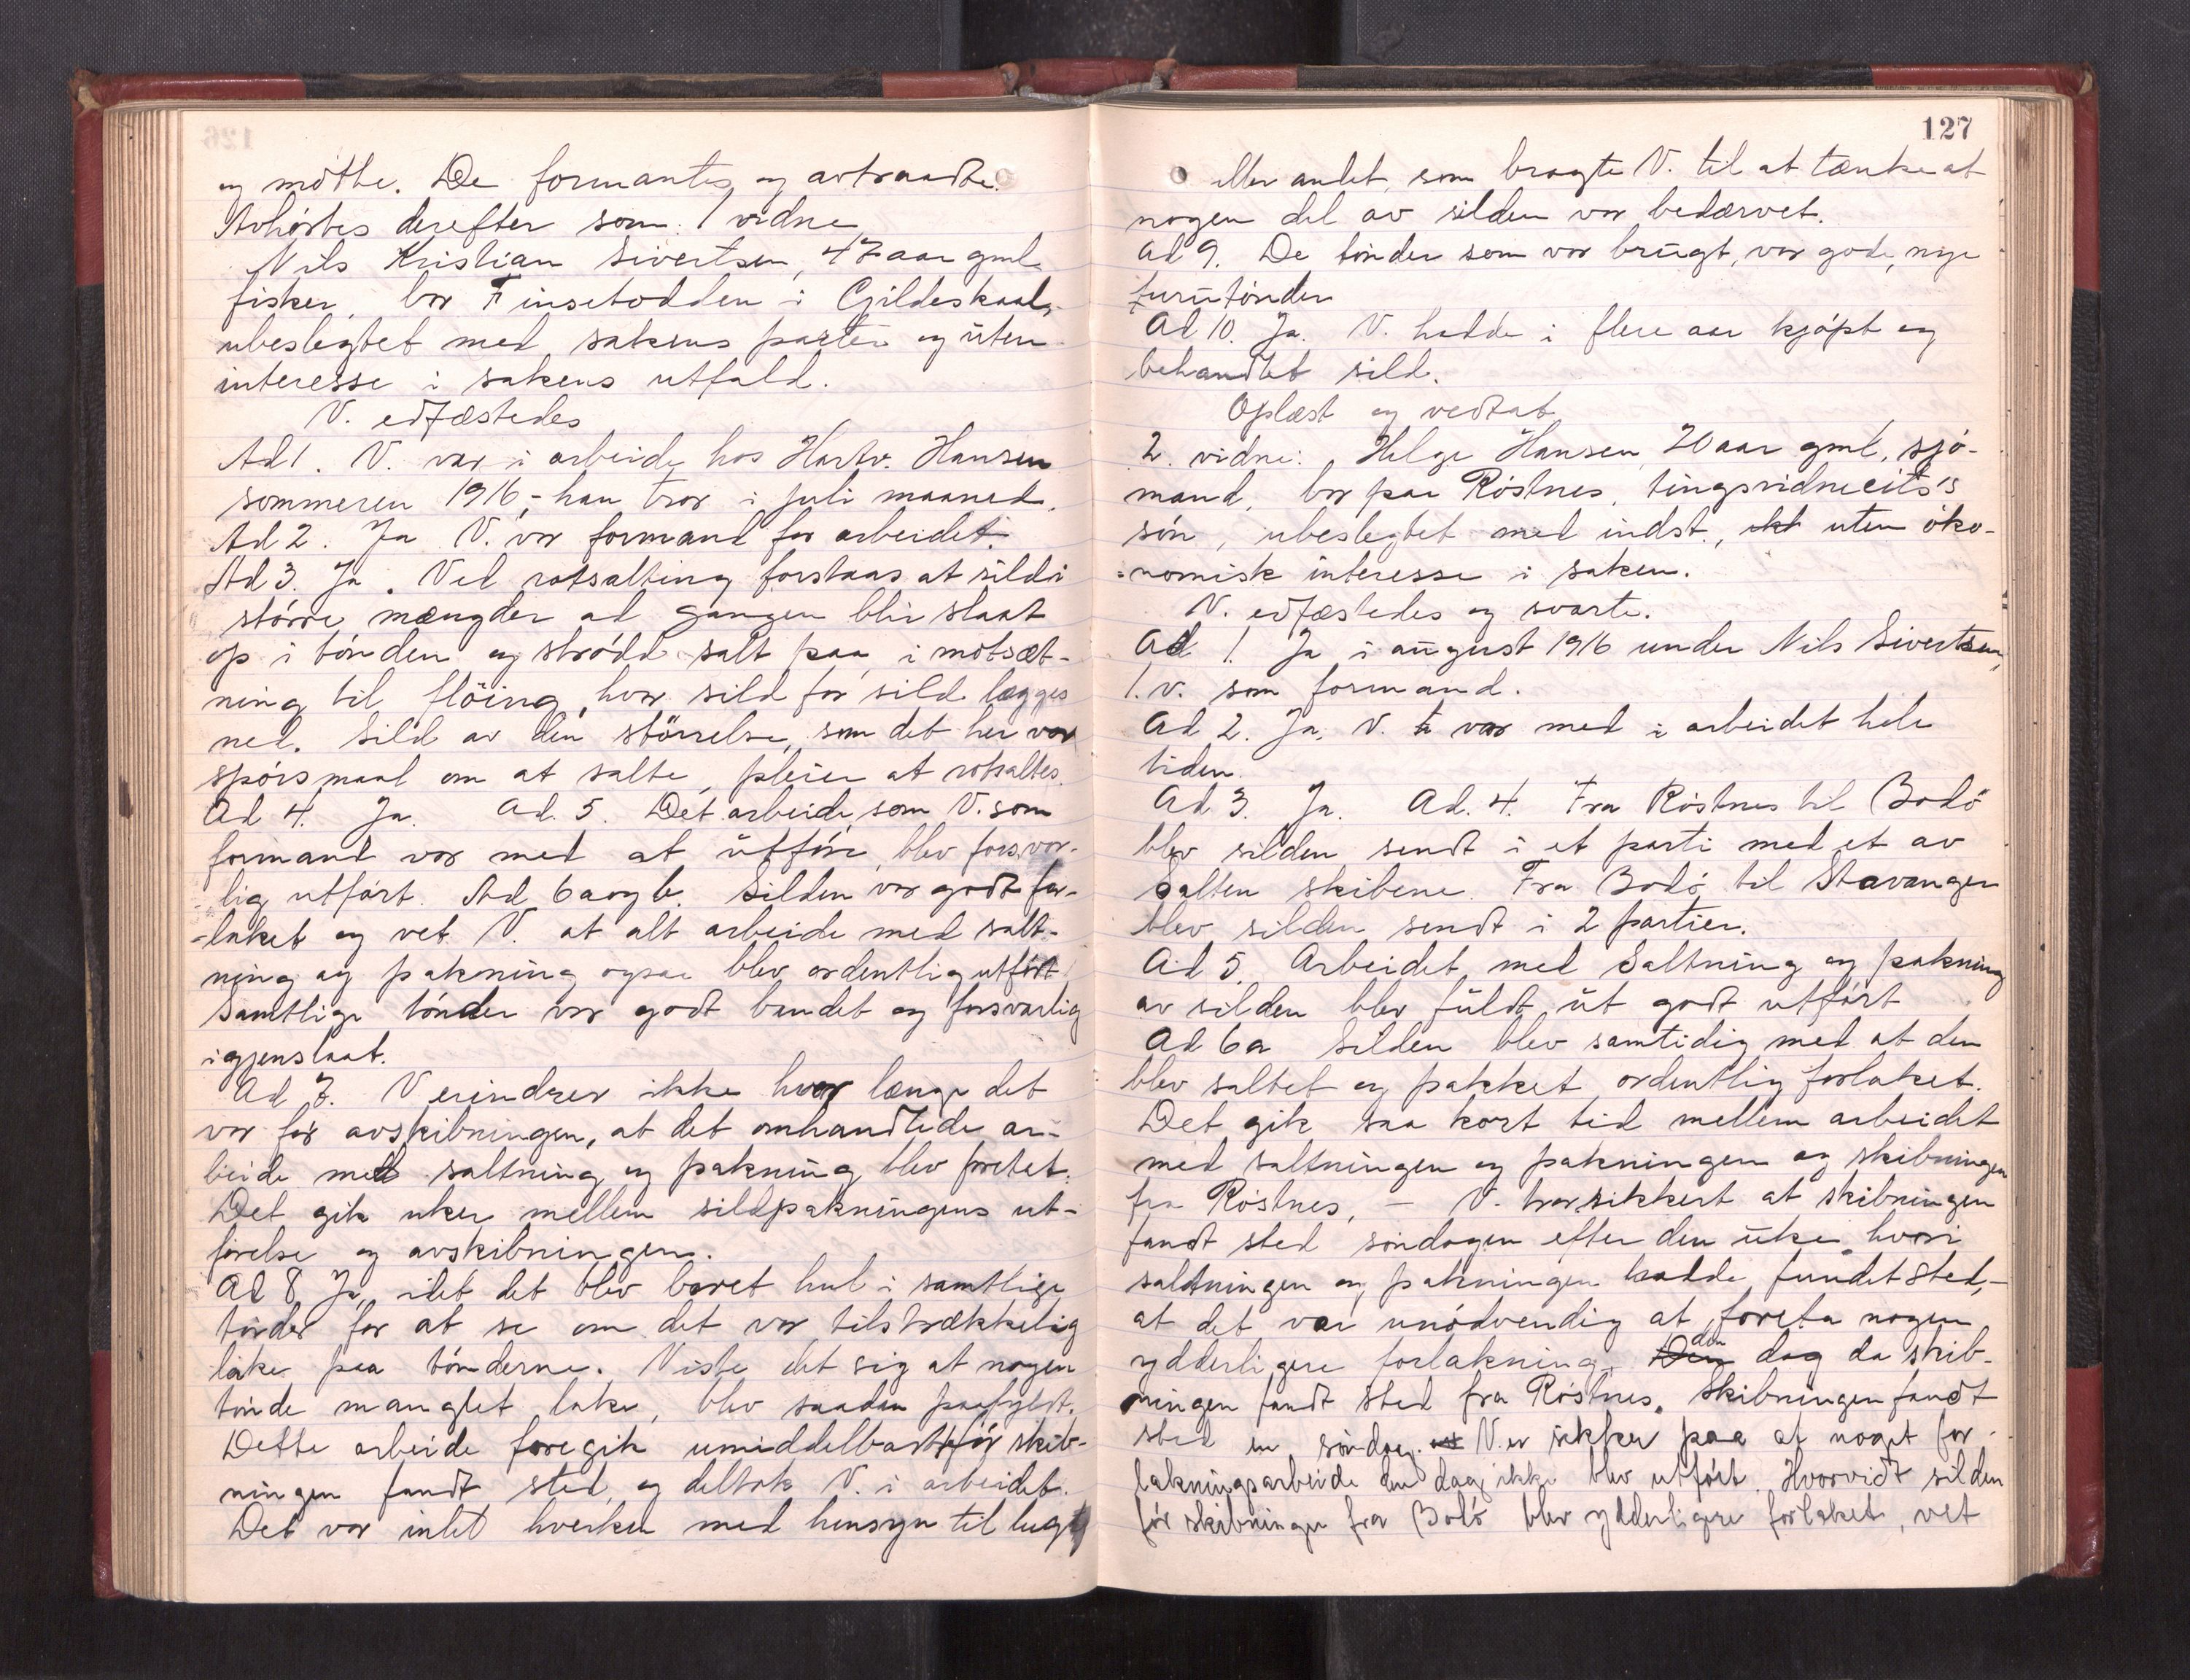 og møtte. De formantes og avtraadte.
Avhørtes derefter som 1 vidne
Nils Kristian Sivertsen, 47 aar gml.
fisker, bor Finsetodden i Gildeskaal,
ubeslegtet med sakens parter og uten
interesse i sakens utfald.
V. edfæstedes
Ad 1. V. var i arbeide hos Hartv. Hansen
sommeren 1916, – han tror i juli maaned.
Ad 2. Ja V. var formand for arbeidet.
Ad 3. Ja. Ved rotsalting forstaas at sild i
større mængder ad gangen blir slaat
op i tønden og strødd salt paa i motsæt-
ning til fløing, hvor sild for sild lægges
ned. Sild av den størrelse, som det her var
spørsmaal om at salte, pleier at rotsaltes.
Ad 4. Ja. Ad. 5. Det arbeide, som V. som
formand var med at utføre, blev forsvar-
lig utført. Ad 6 a og b. Silden var godt for-
-laket og vet V. at alt arbeide med salt-
ning og pakning ogsaa blev ordentlig utført.
Samtlige tønder var godt bundet og forsvarlig
igjenslaat.
Ad 7. V erindrer ikke hvor længe det
var før avskibningen, at det omhandlede ar-
beide med saltning og pakning blev foretat.
Det gik uker mellem sildpakningens ut-
førelse og avskibningen.
Ad 8 Ja, idet det blev boret hul i samtlige
tønder for at se om det var tilstrækkelig
lake paa tønderne. Viste det sig at nogen
tønde manglet lake, blev saadan paafyldt.
Dette arbeide foregik umiddelbart før skib-
ningen fandt sted, og deltok V. i arbeidet.
Det var intet hverken med hensyn til lugt
127
eller andet, som bragte V. til at tænke at
nogen del av silden var bedærvet.
Ad 9. De tønder som var brugt, var gode, nye
furutønder
Ad 10. Ja. V. hadde i flere aar kjøpt og
behandlet sild.
Oplæst og vedtat
2. vidne: Helge Hansen 20 aar gml, sjø-
mand, bor paa Røstnes, tingsvidnecits's
søn, ubeslegtet med indst., ikt uten øko-
nomisk interesse i saken.
V. edfæstedes og svarte.
Ad 1. Ja i august 1916 under Nils Sivertsen,
1. v. som formand.
Ad 2. Ja. V. var med i arbeidet hele
tiden.
Ad 3. Ja. Ad. 4. Fra Røstnes til Bodø
blev silden sendt i et parti med et av
Salten skibene. Fra Bodø til Stavanger
blev silden sendt i 2 partier.
Ad 5. Arbeidet med Saltning og pakning
av silden blev fuldt ut godt utført
Ad 6a Silden blev samtidig med at den
blev saltet og pakket ordentlig forlaket.
Det gik saa kort tid mellem arbeidet
med saltningen og pakningen og skibningen
fra Røstnes, – V. tror sikkert at skibningen
fandt sted søndagen efter den uke, hvori
saltningen og pakningen hadde fundet sted, –
at det var unødvendig at foreta nogen
ydderligere forlakning, Den den dag da skib-
ningen fandt sted fra Røstnes. Skibningen fandt
sted en søndag. V. er sikker paa at noget for-
lakningsarbeide den dag ikke blev utført. Hvorvidt silden
før skibningen fra Bodø blev ydderligere forlaket, vet